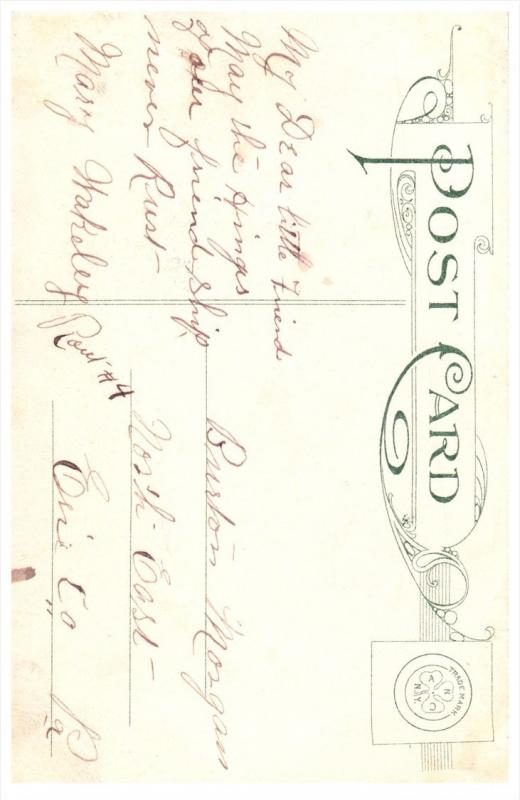 POST CARD
TRADE MARK
A N C N.Y.
My Dear little Friend
May the Hinges
of our friendship
never Rust
Mary Wakeley
Rout #4
Burton Morgan
North East
Erie Co Pa